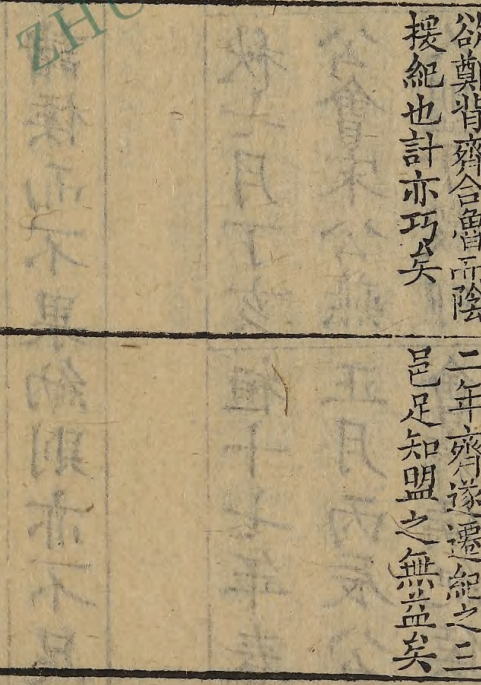 欲鄭背齊合魯而陰
援紀也計亦巧矣
二年齊遂遷紀之三
邑足知盟之無益矣
ZHU